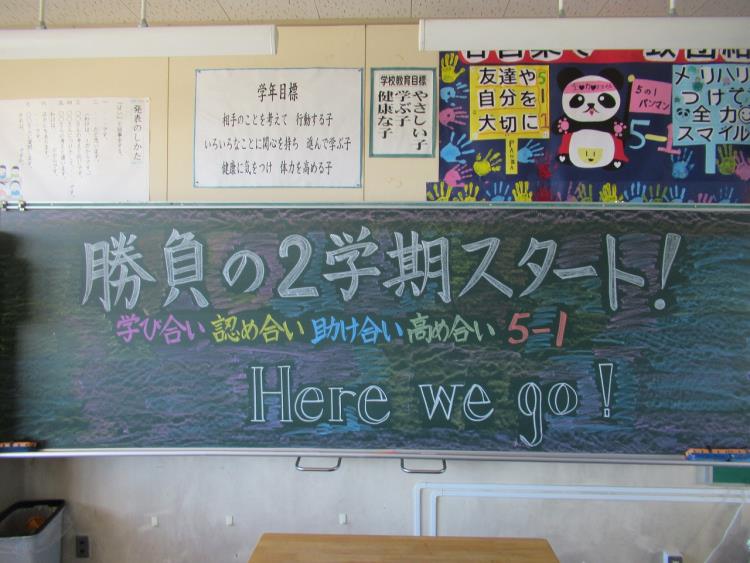 発表のしかた
学年目標
相手のことを考えて 行動する子
いろいろなことに関心を持ち 進んで学ぶ子
健康に気をつけ 体力を高める子
学校教育目標
やさしい子
学ぶ子
健康な子
友達や
自分を
大切に
5の1
パンマン
5-1
メリハリ
つけて
全力
スマイル
勝負の2学期スタート!
学び合い 認め合い 助け合い 高め合い 5-1
Here we go!